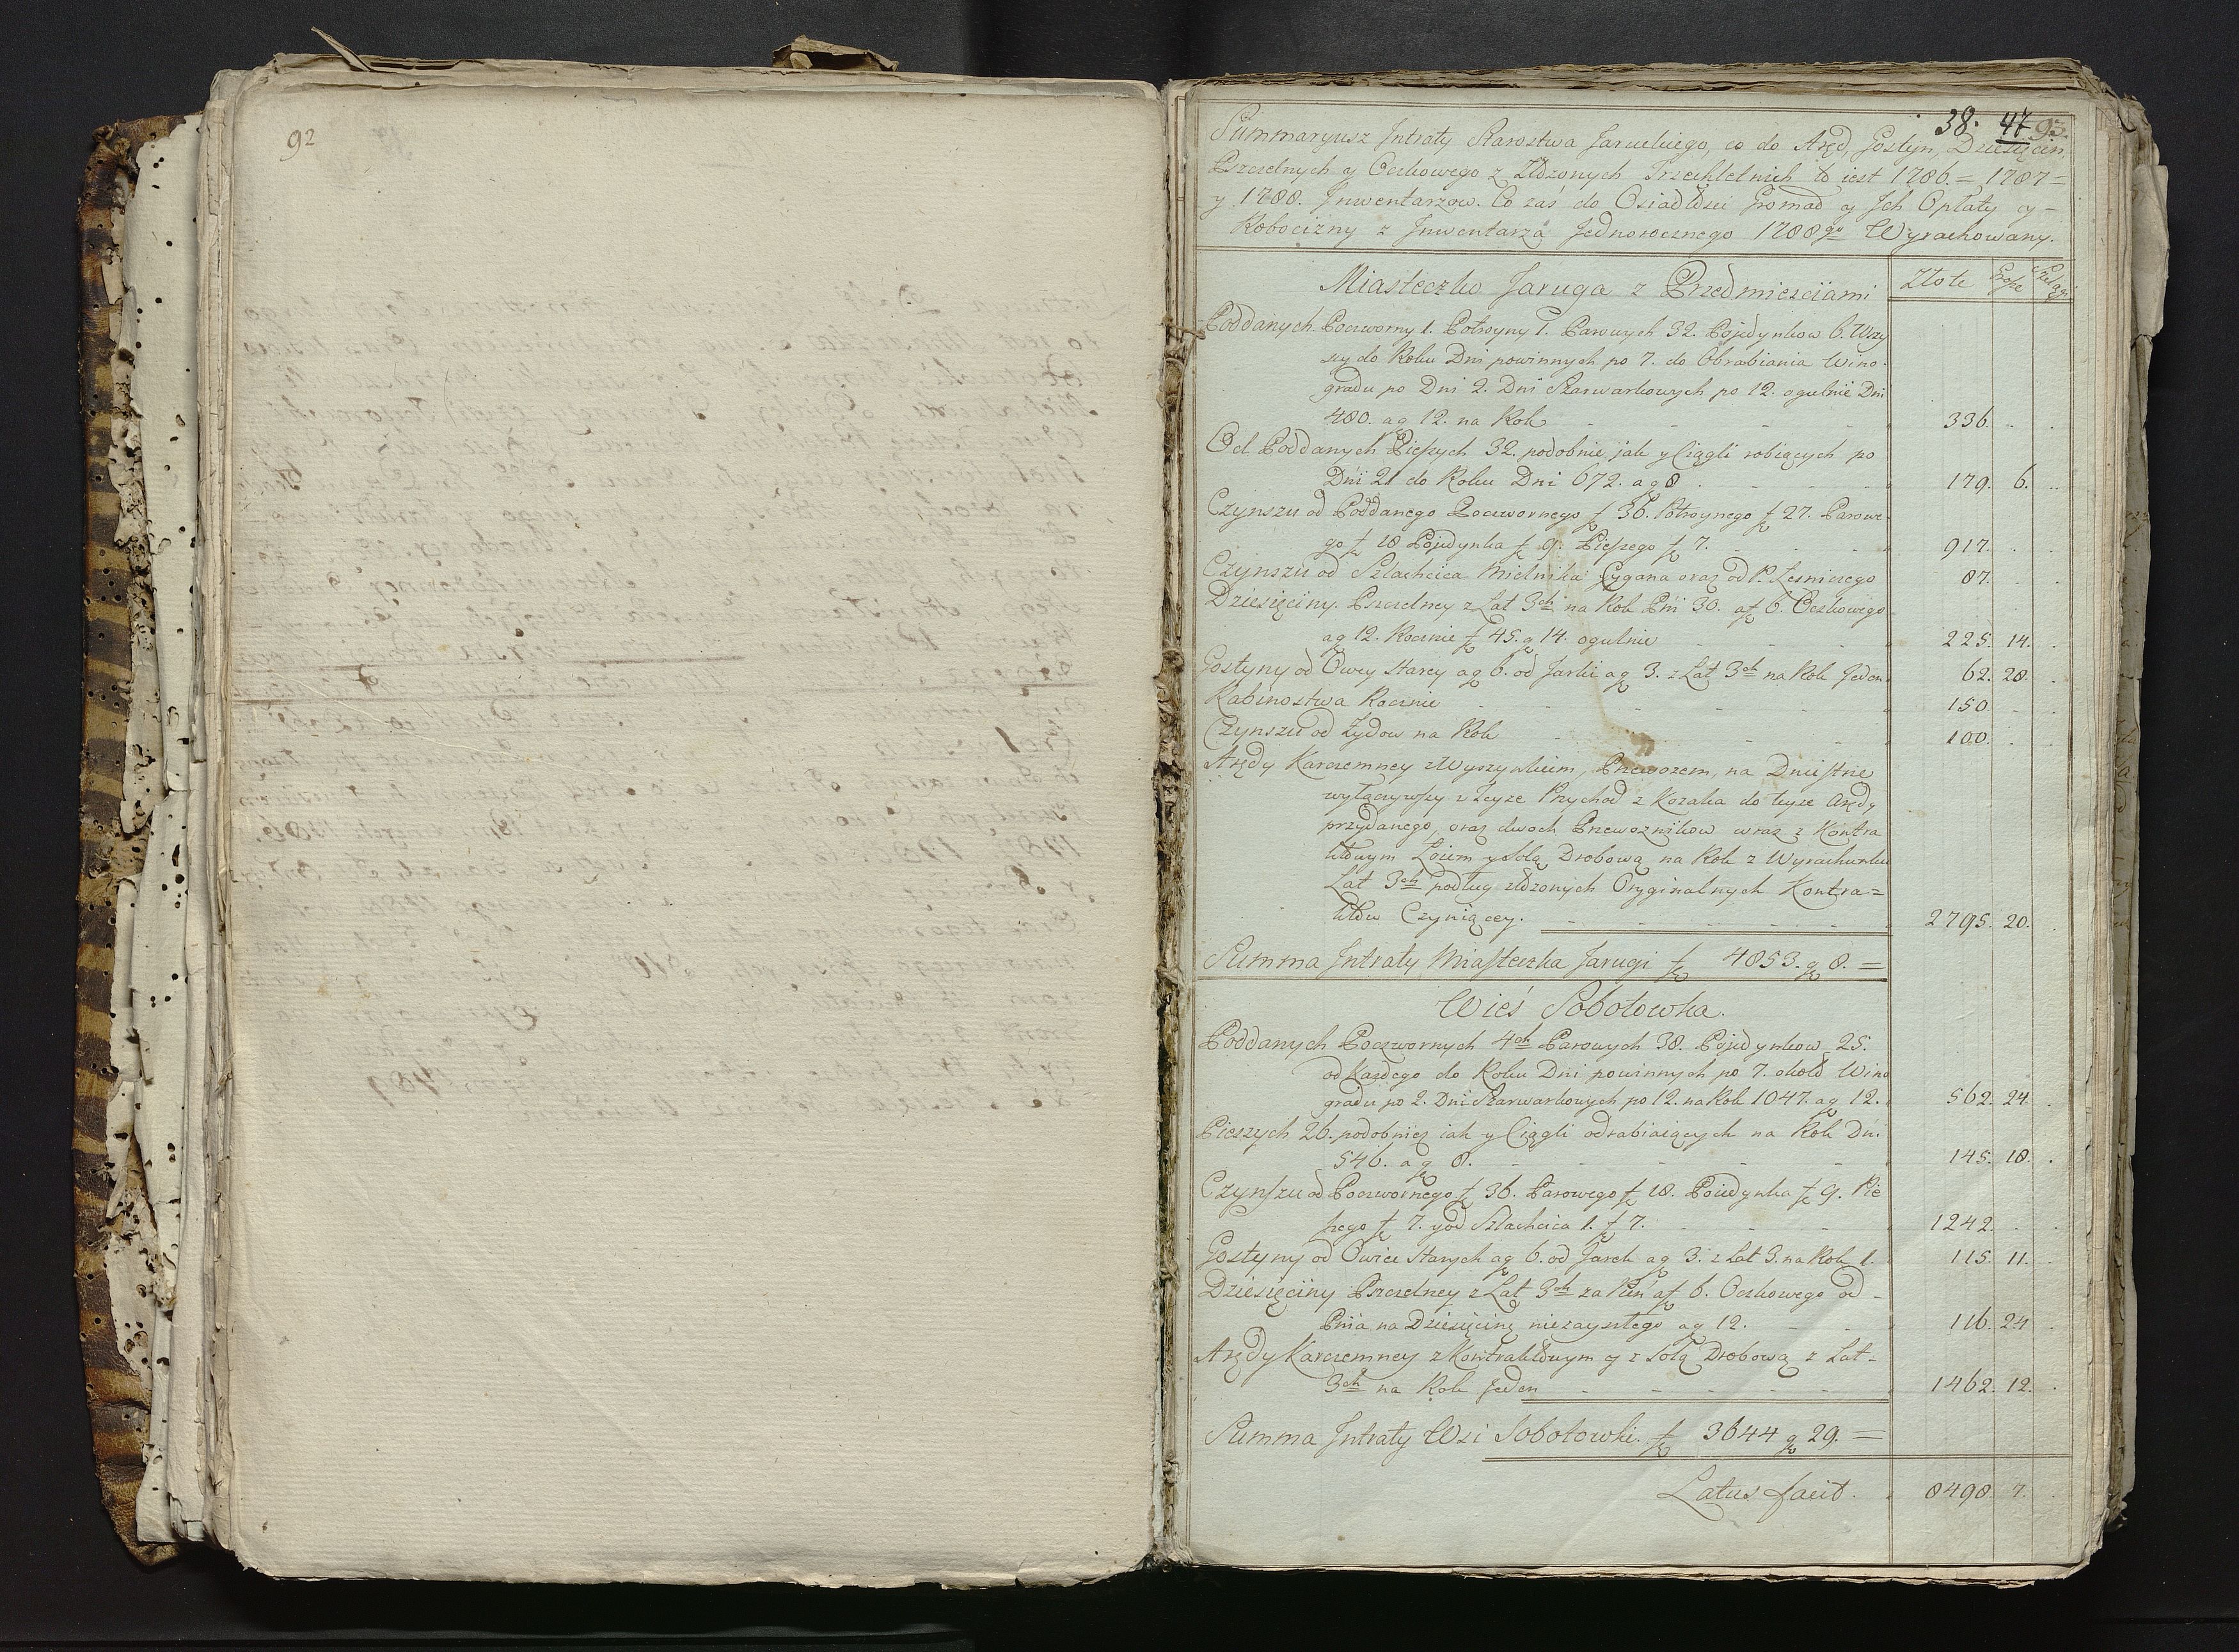 92
38. 47 93.
Summaryusz Intraty Starostwa Jaruckiego, co do Aręd, Gostyn, Dziesięcin,
Pszczelnych y Oczkowego z Złożonych Trzechletnich to iest 1786.=1787=
y 1788. Inwentarzow. Co zaś do Osiadłości Gromad y Ich Opłaty y-
Robocizny z Inwentarza Jednorocznego 1788go Wyrachowany.
Miasteczko Jaruga z Przedmieściami Złote Grosze Szelągi
Poddanych Poczworny 1. Potroyny 1. Parowych 32. Pojedynkow 6. Wszy
scy do Roku Dni powinnych po 7. do Obrabiania Wino-
gradu po Dni 2. Dni Szarwarkowych po 12. ogulnie Dni
480. a g 12. na Rok 336.
Od Poddanych Pieszych 32. podobnie jak y Ciągli robiących po
Dni 21 do Roku Dni 672. a g 8 179. 6.
Czynszu od Poddanego Poczwornego f 36. Potroynego f 27. Parowe-
go f 18 Pojedynka f 9. Pieszego f 7. 917.
Czynszu od Szlachcica Mielnika Cygana oraz od P. Leśniczego 87.
Dziesięciny Pszczelney z Lat 3ch na Rok Pni 30. a f 6. Oczkowego
a g 12. Rocznie f 45. g 14. ogulnie 225. 14.
Gostyny od Owcy Starey a g 6. od Jarki a g 3. z Lat 3ch na Rok Jeden 62. 28.
Rabinostwa Rocznie 150.
Czynszu od Żydow na Rok 100.
Arędy Karczemney z Wyszynkiem, Przewozem, na Dniestrze
wyłączywszy z Teyze Przychod z Kozaka do teyze Arędy
przydanego, oraz dwoch Przewoznikow wraz z Kontra
ktowym Łoiem y Solą Drobową na Rok z Wyrachunku
Lat 3ch podług złożonych Oryginalnych Kontra=
ktow Czyniącey. 2795. 20.
Summa Intraty Miasteczka Jarugi f 4853. g 8. =
Wieś Sobotowka.
Poddanych Poczwornych 4ch Parowych 38. Pojedynkow 25.
od Kazdego do Roku Dni powinnych po 7. około Wino
gradu po 2. Dni Szarwarkowych po 12. na Rok 1047. a g 12. 562. 24.
Pieszych 26. podobniez iak y Ciągli odrabiaiących na Rok Dni
546. a g 8. 145. 18.
Czynszu od Poczwornego f 36. Parowego f 18. Pojedynka f 9. Pie
szego f 7. y od Szlachcica 1. f 7. 1242.
Gostyny od Owiec Starych a g 6. od Jarek a g 3. z Lat 3. na Rok 1. 115. 11.
Dziesięciny Pszczelney z Lat 3ch za Pień a f 6. Oczkowego od-
Pnia na Dziesięcinę niezayszłego a g 12. 116. 24.
Arędy Karczemney z Kontraktowym y z Solą Drobową z Lat-
3ch na Rok Jeden 1462. 12.
Summa Intraty Wsi Sobotowki. f 3644 g 29. =
Latus facit. 8498. 7.